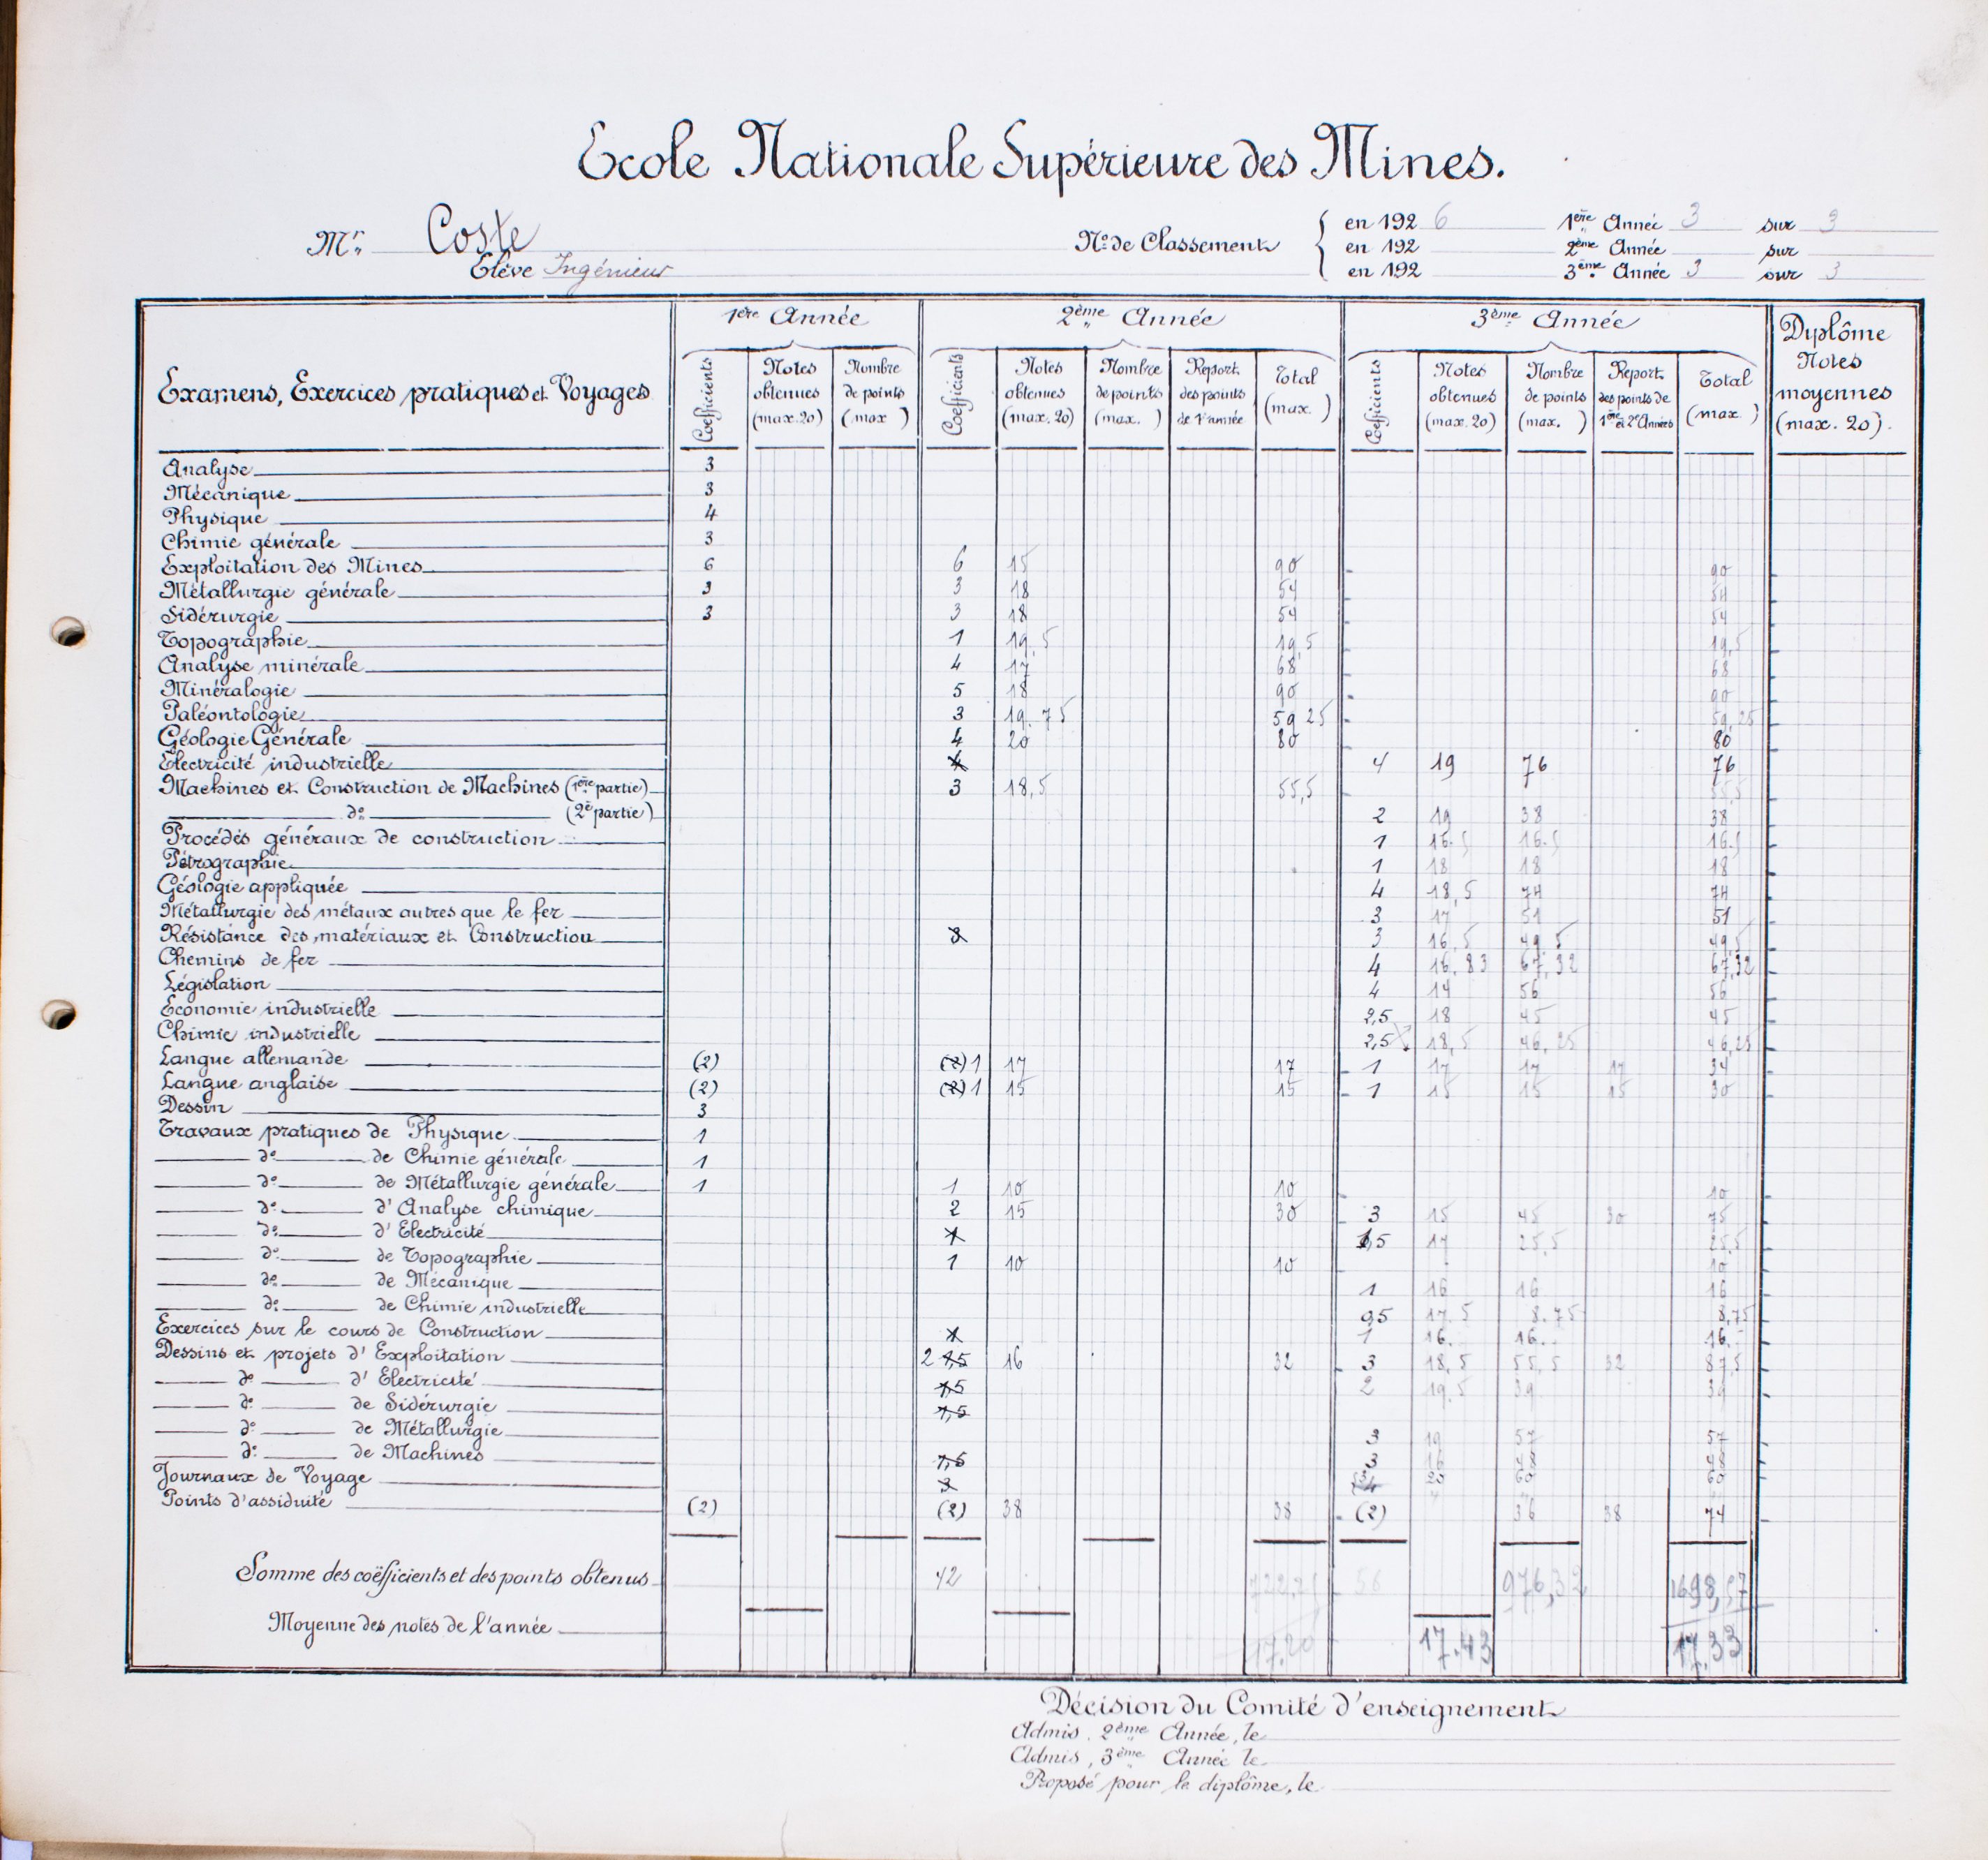 Ecole Nationale Supérieure des Mines.
Mr. Coste
Elève Ingénieur
No. de Classement
en 192 6 1ère Année 3 sur 3
en 192 2ème Année sur
en 192 3ème Année 3 sur 3
Examens, Exercices pratiques et Voyages
1ère Année 2ème Année 3ème Année
Coefficients Notes obtenues (max. 20) Nombre de points (max )
Coefficients Notes obtenues (max. 20) Nombre de points (max. ) Report des points de 1e année Total (max. )
Coefficients Notes obtenues (max. 20) Nombre de points (max. ) Report des points de 1ère et 2e Années Total (max. )
Diplôme Notes moyennes (max. 20).
Analyse 3
Mécanique 3
Physique 4
Chimie générale 3
Exploitation des Mines 6 6 15 90 90
Métallurgie générale 3 3 18 54 54
Sidérurgie 3 3 18 54 54
Topographie 1 19,5 19,5 19,5
Analyse minérale 4 17 68 68
Minéralogie 5 18 90 90
Paléontologie 3 19.75 59 25 59,25
Géologie Générale 4 20 80 80
Electricité industrielle 4 4 19 76 76
Machines et Construction de Machines (1ère partie) 3 18,5 55,5 55,5
do (2e partie) 2 19 38 38
Procédés généraux de construction 1 16.5 16.5 16.5
Pétrographie 1 18 18 18
Géologie appliquée 4 18,5 74 74
Métallurgie des métaux autres que le fer 3 17 51 51
Résistance des matériaux et Construction 3 3 16,5 49,5 49,5
Chemins de fer 4 16.83 67,32 67,32
Législation 4 14 56 56
Economie industrielle 2,5 18 45 45
Chimie industrielle 2,5 18,5 46,25 46,25
Langue allemande (2) (2) 1 17 17 1 17 17 17 34
Langue anglaise (2) (2) 1 15 15 1 15 15 15 30
Dessin 3
Travaux pratiques de Physique 1
do de Chimie générale 1
do de Métallurgie générale 1 1 10 10 10
do d'Analyse chimique 2 15 30 3 15 45 30 75
do d'Electricité 1 1,5 17 25,5 25,5
do de Topographie 1 10 10 10
do de Mécanique 1 16 16 16
do de Chimie industrielle 0,5 17.5 8.75 8,75
Exercices sur le cours de Construction 1 1 16. 16. 16.
Dessins et projets d'Exploitation 2 1,5 16 32 3 18,5 55,5 32 87,5
do d'Electricité 1,5 2 19.5 39 39
do de Sidérurgie 1,5
do de Métallurgie 3 19 57 57
do de Machines 1,5 3 16 48 48
Journaux de Voyage 3 20 60 60
Points d'assiduité (2) (2) 38 38 (2) 36 38 74
Somme des coëfficients et des points obtenus 42 722,25 56 976,32 1698,57
Moyenne des notes de l'année 17,20 17.43 17,33
Décision du Comité d'enseignement
Admis, 2ème Année, le
Admis, 3ème Année le
Proposé pour le diplôme, le